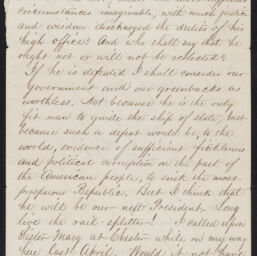 circumstances imaginable, with much justice
and wisdom discharged the duties of his
high office! And who shall say that he
ought not or will not be reelected?
If he is defeated I shall consider our
Government and our greenbacks as
worthless. Not because he is the only
fit man to guide the ship of state, but
because such a defeat would be, to the
world, evidence of sufficient fickleness
and political corruption on the part of
the American people, to sink the most
prosperous Republic. But I think that
he will be our next President. Long
live the rail-splitter! I called upon
Sister Mary at Chester while on my way
here last April. Would it not have